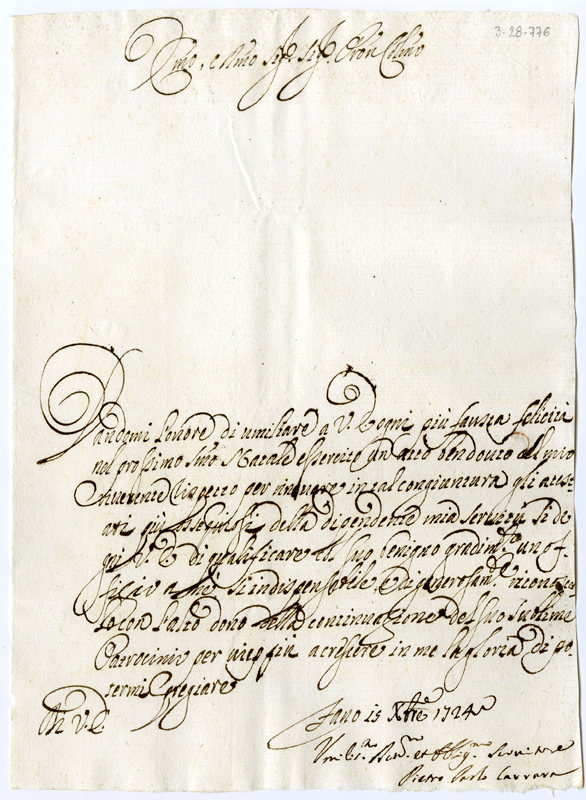 3-28-776
Emo, e Rmo Sig.r Sig.r Pron Colmo
Dandomi l'onore di umiliare a V. E. ogni più fausta felicità
nel prossimo Smo Natale essercito un atto ben dovuto del mio
riverente rispetto per rinovare in tal congiuntura gli attest-
ati più ossequiosi della dipendente mia servitù. Si de
gni V. E. di qualificare col suo benigno gradim.to un of-
ficio a me sì indispensabile, e di generosam.te
lo con l'alto dono della continuazione del suo sublime
Patrocinio per vieppiù accrescere in me la gloria di po-
termi pregiare
Di V. E.
Fano 15 Xbre 1724
Um.mo Dev.mo et Obblig.mo Servitore
Pietro Paolo Carrara